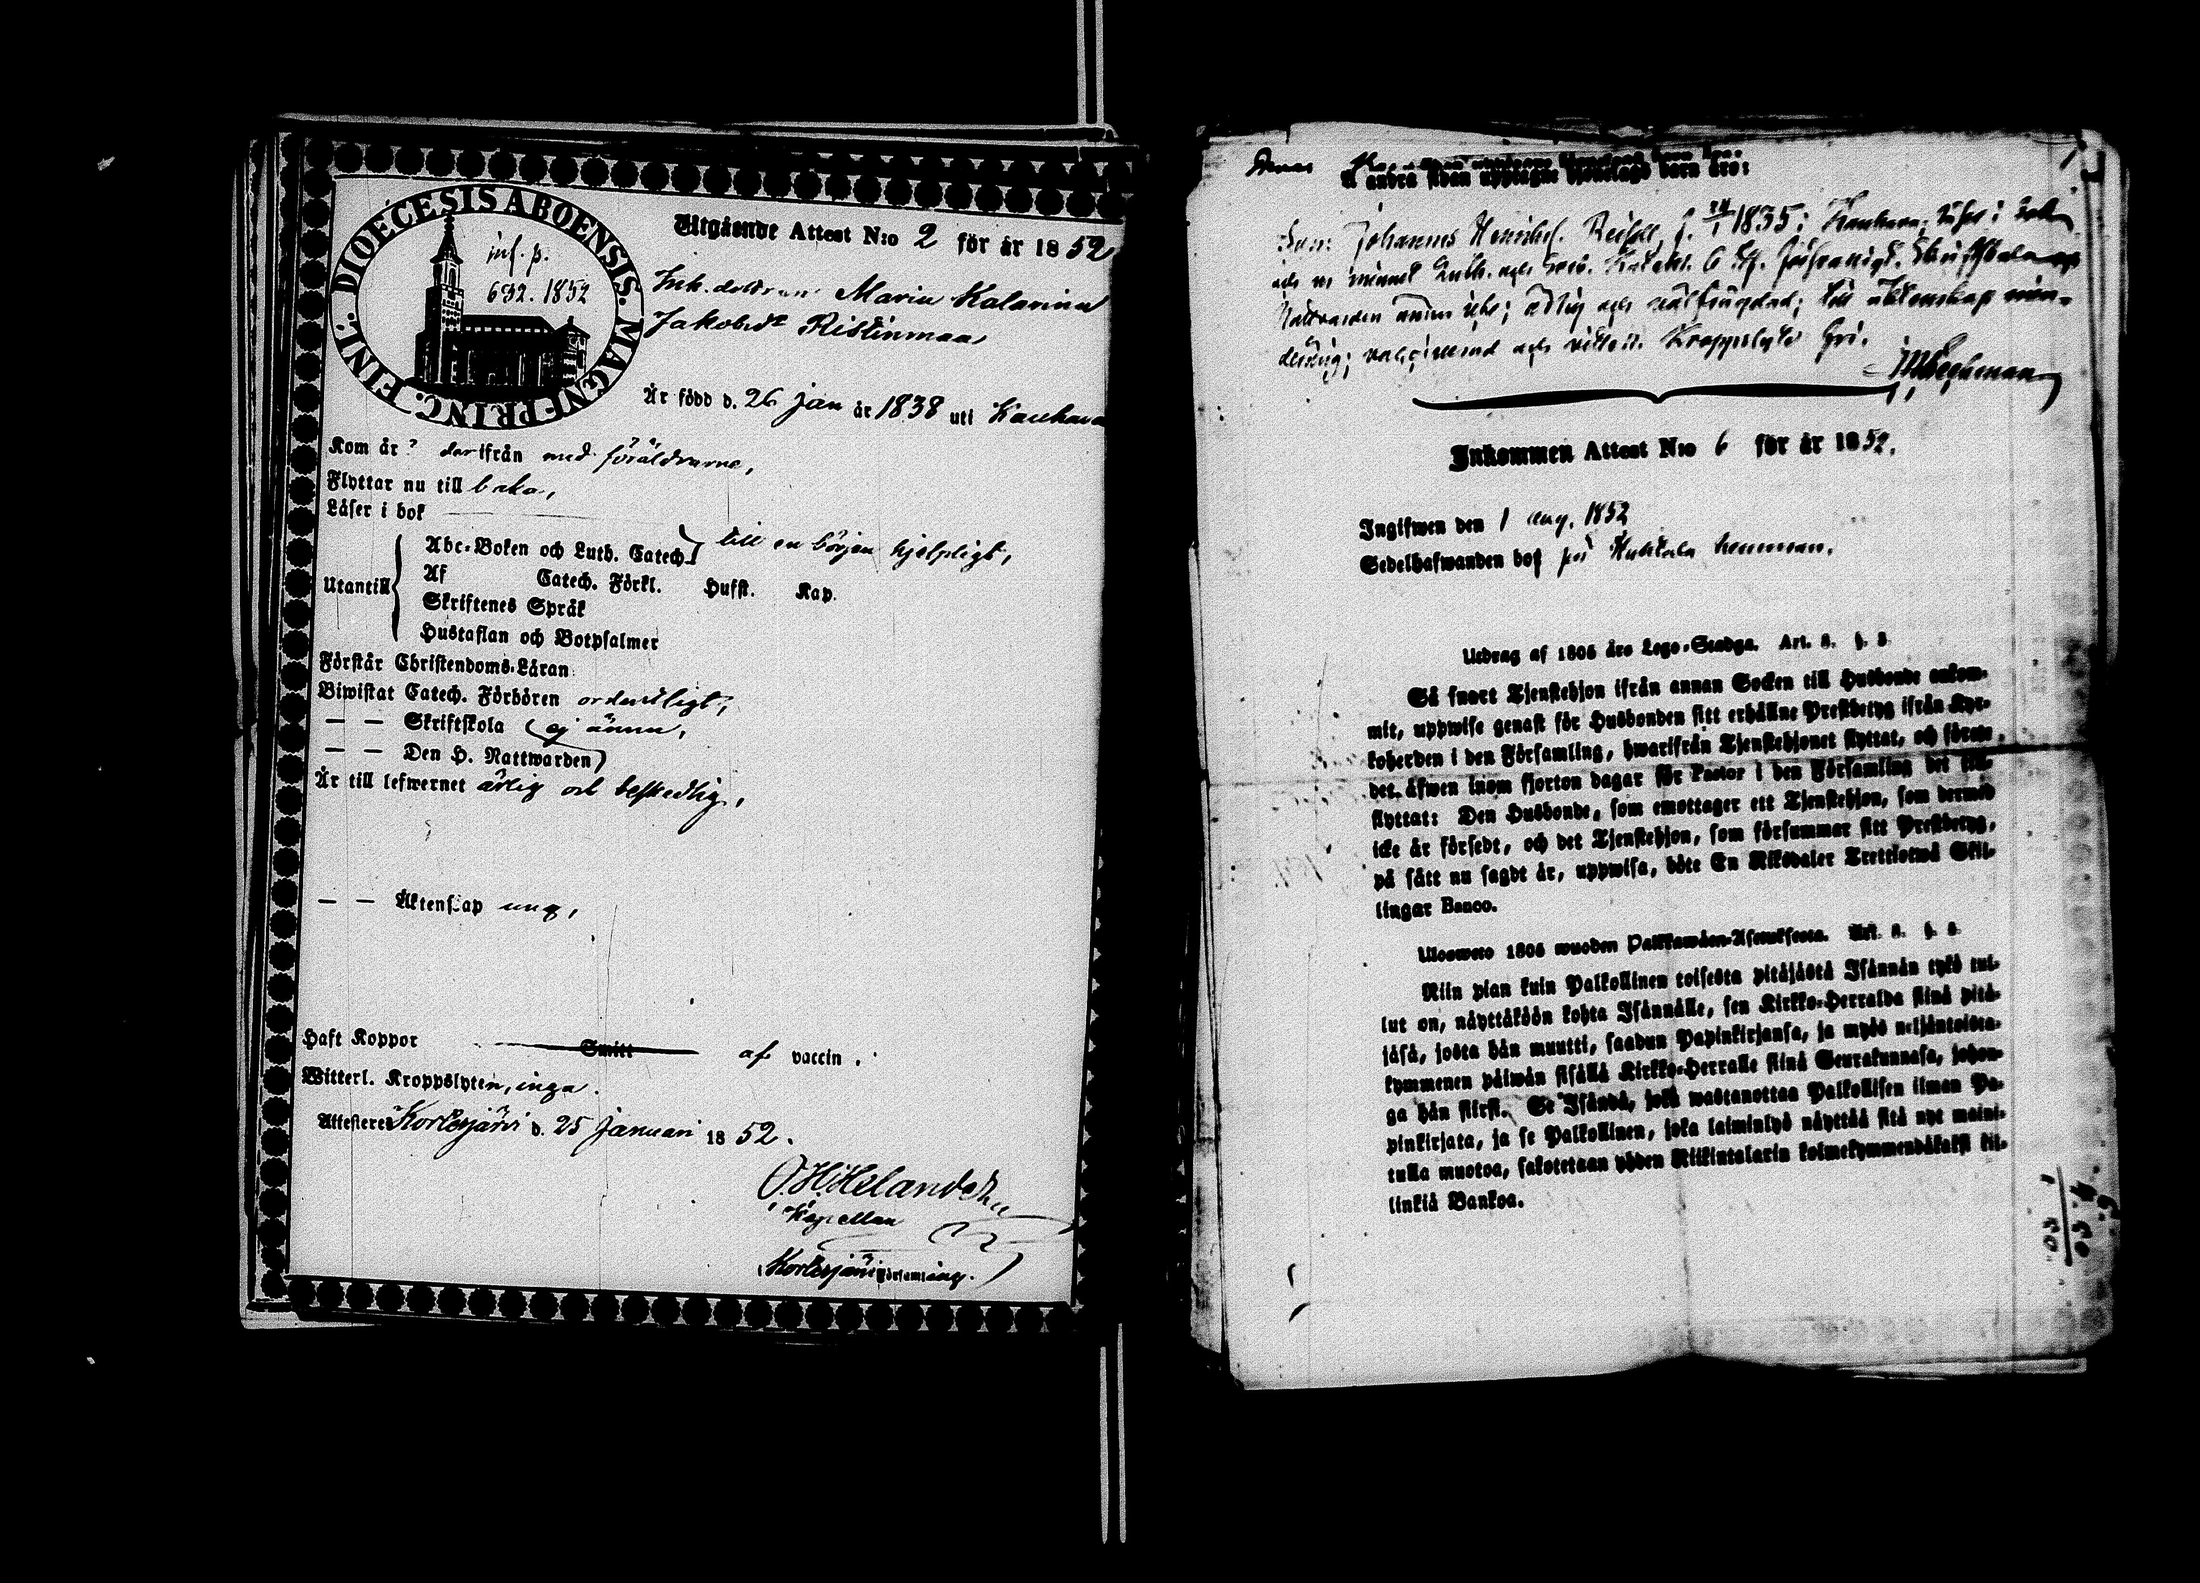 DIOECESIS ABOENSIS. MAGNI PRINC. FINL.
inf. p.
632. 1852
Utgående Attest N:o 2 för år 1852
Inh. dottren Maria Katarina
Jakobsdr Ristinmaa
Är född d. 26 Jan år 1838 uti Kauhava
Kom år ? derifrån med föräldrarne,
Flyttar nu till baka,
Läser i bok
Utantill
Abc-Boken och Luth. Catech. till en början hjelpligt,
Af Catech. Förkl. Hufst. Kap.
Skriftenes Språk
Hustaflan och Botpsalmer
Förstår Christendoms-Läran
Biwistat Catech. Förhören ordentligt,
— — Skriftskola ej ännu,
— — Den H. Nattwarden
Är till lefwernet ärlig och beskedlig,
— — Äktenskap ung,
Haft Koppor Smitt af vaccin.
Witterl. Kroppslyten, inga.
Attesteres Kortesjärvi d. 25 Januari 1852.
Kapellan
Kortesjärvi församling.
å andra sidan upptagne Hjonelags barn äro:
Son: Johannes Henrik f. 1835; Kauhava;
och Luth. och Kateki.
Nattvarden ärlig och välfrägdad; till äktenskap
och Kroppslyte fri.
Inkommen Attest N:o 6 för år 1852.
Ingifwen den 1 Aug. 1852
Sedelhafwanden bor på Huhtala hemman.
Utdrag af 1805 års Lego-Stadga. Art. 8. §. 8.
Så snart Tjenstehjon ifrån annan Socken till Husbonde ankom-
mit, uppwise genast för Husbonden sitt erhållne Prestbetyg ifrån Kyr-
koherden i den Församling, hwarifrån Tjenstehjonet flyttat, och förete
det äfwen inom fjorton dagar för Pastor i den Församling det till-
flyttat: Den Husbonde, som emottager ett Tjenstehjon, som dermed
icke är försedt, och det Tjenstehjon, som försummar sitt Prestbetyg,
på sätt nu sagdt är, uppwisa, böte En Riksdaler Trettiotwå Skil-
lingar Banco.
Ulosweto 1805 wuoden Palkkawäen-Asetuksesta. Art. 8. §. 8.
Niin pian kuin Palkollinen toisesta pitäjästä Isännän tykö tul-
lut on, näyttäköön kohta Isännälle, sen Kirkko-Herralda siinä pitä-
jäsä, josta hän muutti, saadun Papinkirjansa, ja myös neljäntoista-
kymmenen päiwän sisällä Kirkko-Herralle siinä Seurakunnasa, johon-
ga hän siirsi. Se Isändä, joka wastanottaa Palkollisen ilman Pa-
pinkirjata, ja se Palkollinen, joka laiminlyö näyttää sitä nyt maini-
tulla muotoa, sakotetaan yhden Riikintalarin kolmekymmendäkaksi kil-
linkiä Bankoa.